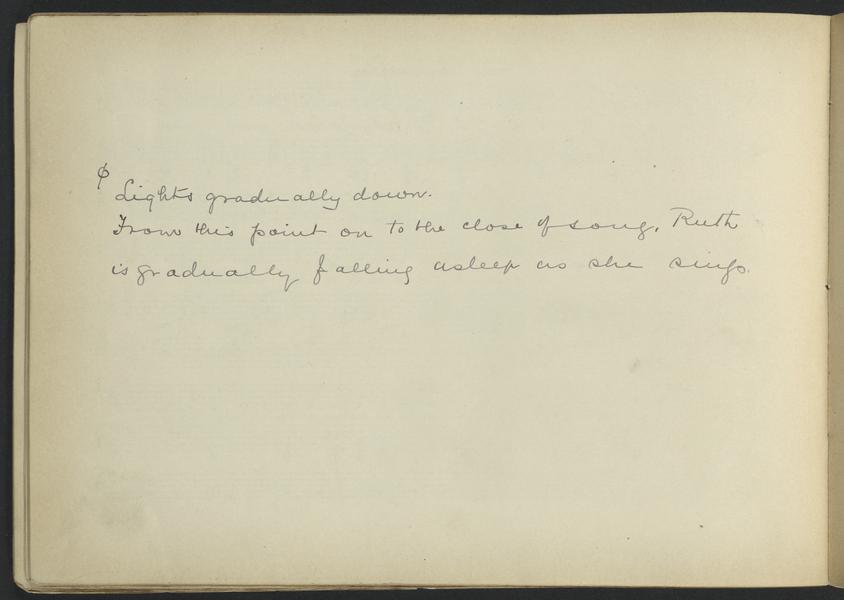 φ Lights gradually down.
From this point on to the close of song, Ruth
is gradually falling asleep as she sings.